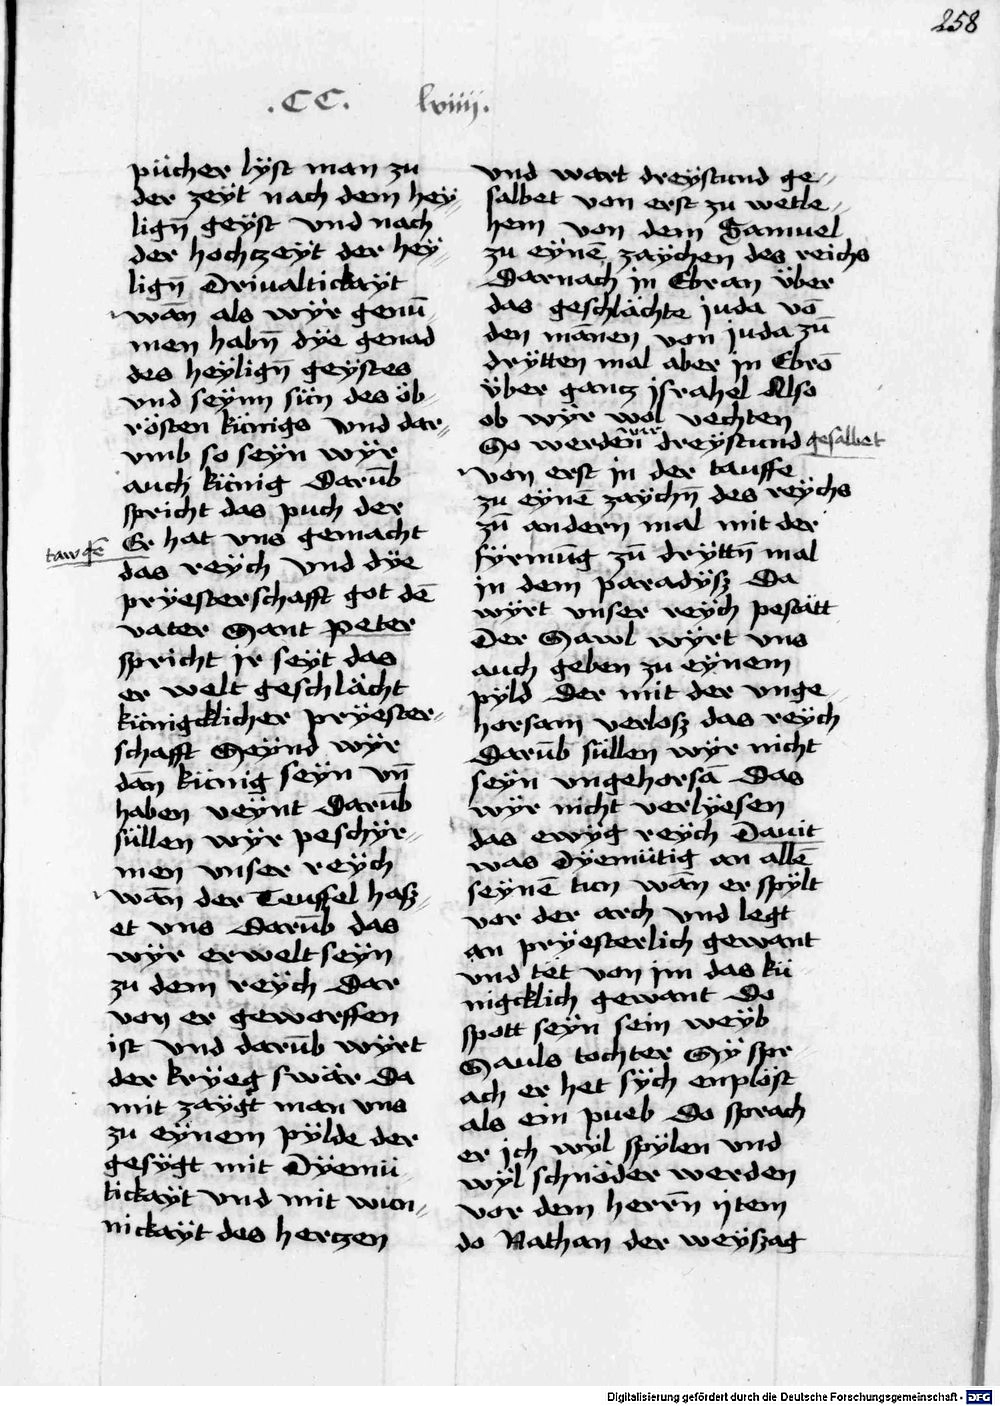 258
.CC. lviiij.
pücher lÿst man zu
der zeÿt nach dem heÿ-
lign̄ geÿst vnd nach
der hochtzeÿt der heÿ-
lign̄ Driualtickaÿt
wān als wÿr genū-
men habn̄ dÿe genad
des heÿlign̄ geÿstes
vnd seÿnn sün des öb-
rösten künigs vnd dar-
vmb so seÿn wÿr
auch künig Darūb
spricht das puch der
tawgē
Er hat vns gemacht
das reÿch vnd dÿe
prÿesterschafft got dē
vater Sant Peter
spricht jr seÿt das
er welt geschlächt
künigcklicher prÿester-
schafft Seÿnd wÿr
dān künig seÿn vn̄
haben veÿnt Darūb
süllen wÿr peschÿr-
men vnser reÿch
wān der Teuffel hasz-
et vns Darūb das
wÿr erwelt seÿn
zu dem reÿch Dar
von er geworffen
ist vnd darūb wÿrt
der krÿeg swär Da
mit zaÿgt man vns
zu eÿnem pÿlde der
gesÿgt mit Dÿemü
tickaÿt vnd mit wun-
nickaÿt des hertzen
vnd wart dreÿstund ge-
salbet von erst zu wetle-
hem von dem Samuel
zu eÿnē zaÿchen des reichs
Darnach in Ebran über
das geschlächte juda vō
den mānen von juda zū
drÿtten mal aber in Ebrō
über gantz jsrahel Also
ob wÿr wol vechten
So werden wir dreÿstund gesalbet
von erst in der tauffe
zu eÿnē zaÿchn̄ des reÿchs
zū andern mal mit der
fÿrmūg zū drÿttn̄ mal
in dem paradÿsz Da
wÿrt vnser reÿch pestätt
Der Sawl wÿrt vns
auch geben zu eÿnem
pÿld Der mit der vnge-
horsam verlosz das reÿch
Darūb süllen wÿr nicht
seÿn vngehorsā Das
wÿr nicht verlÿesen
das ewÿg reÿch Dauit
was Dÿemütig an allē
seÿnē tun wān er spÿlt
vor der arch vnd legt
an prÿesterlich gewant
vnd tet von jm das kü
nigcklich gewant Do
spott seÿn sein weÿb
Sauls tochter Sÿ spr-
ach er het sÿch enplöst
als ein pueb Do sprach
er jch wÿl spÿlen vnd
wÿl schnöder werden
vor dem herrn̄ ijtem
do Nathan der weÿszag
Digitalisierung gefördert durch die Deutsche Forschungsgemeinschaft - DFG